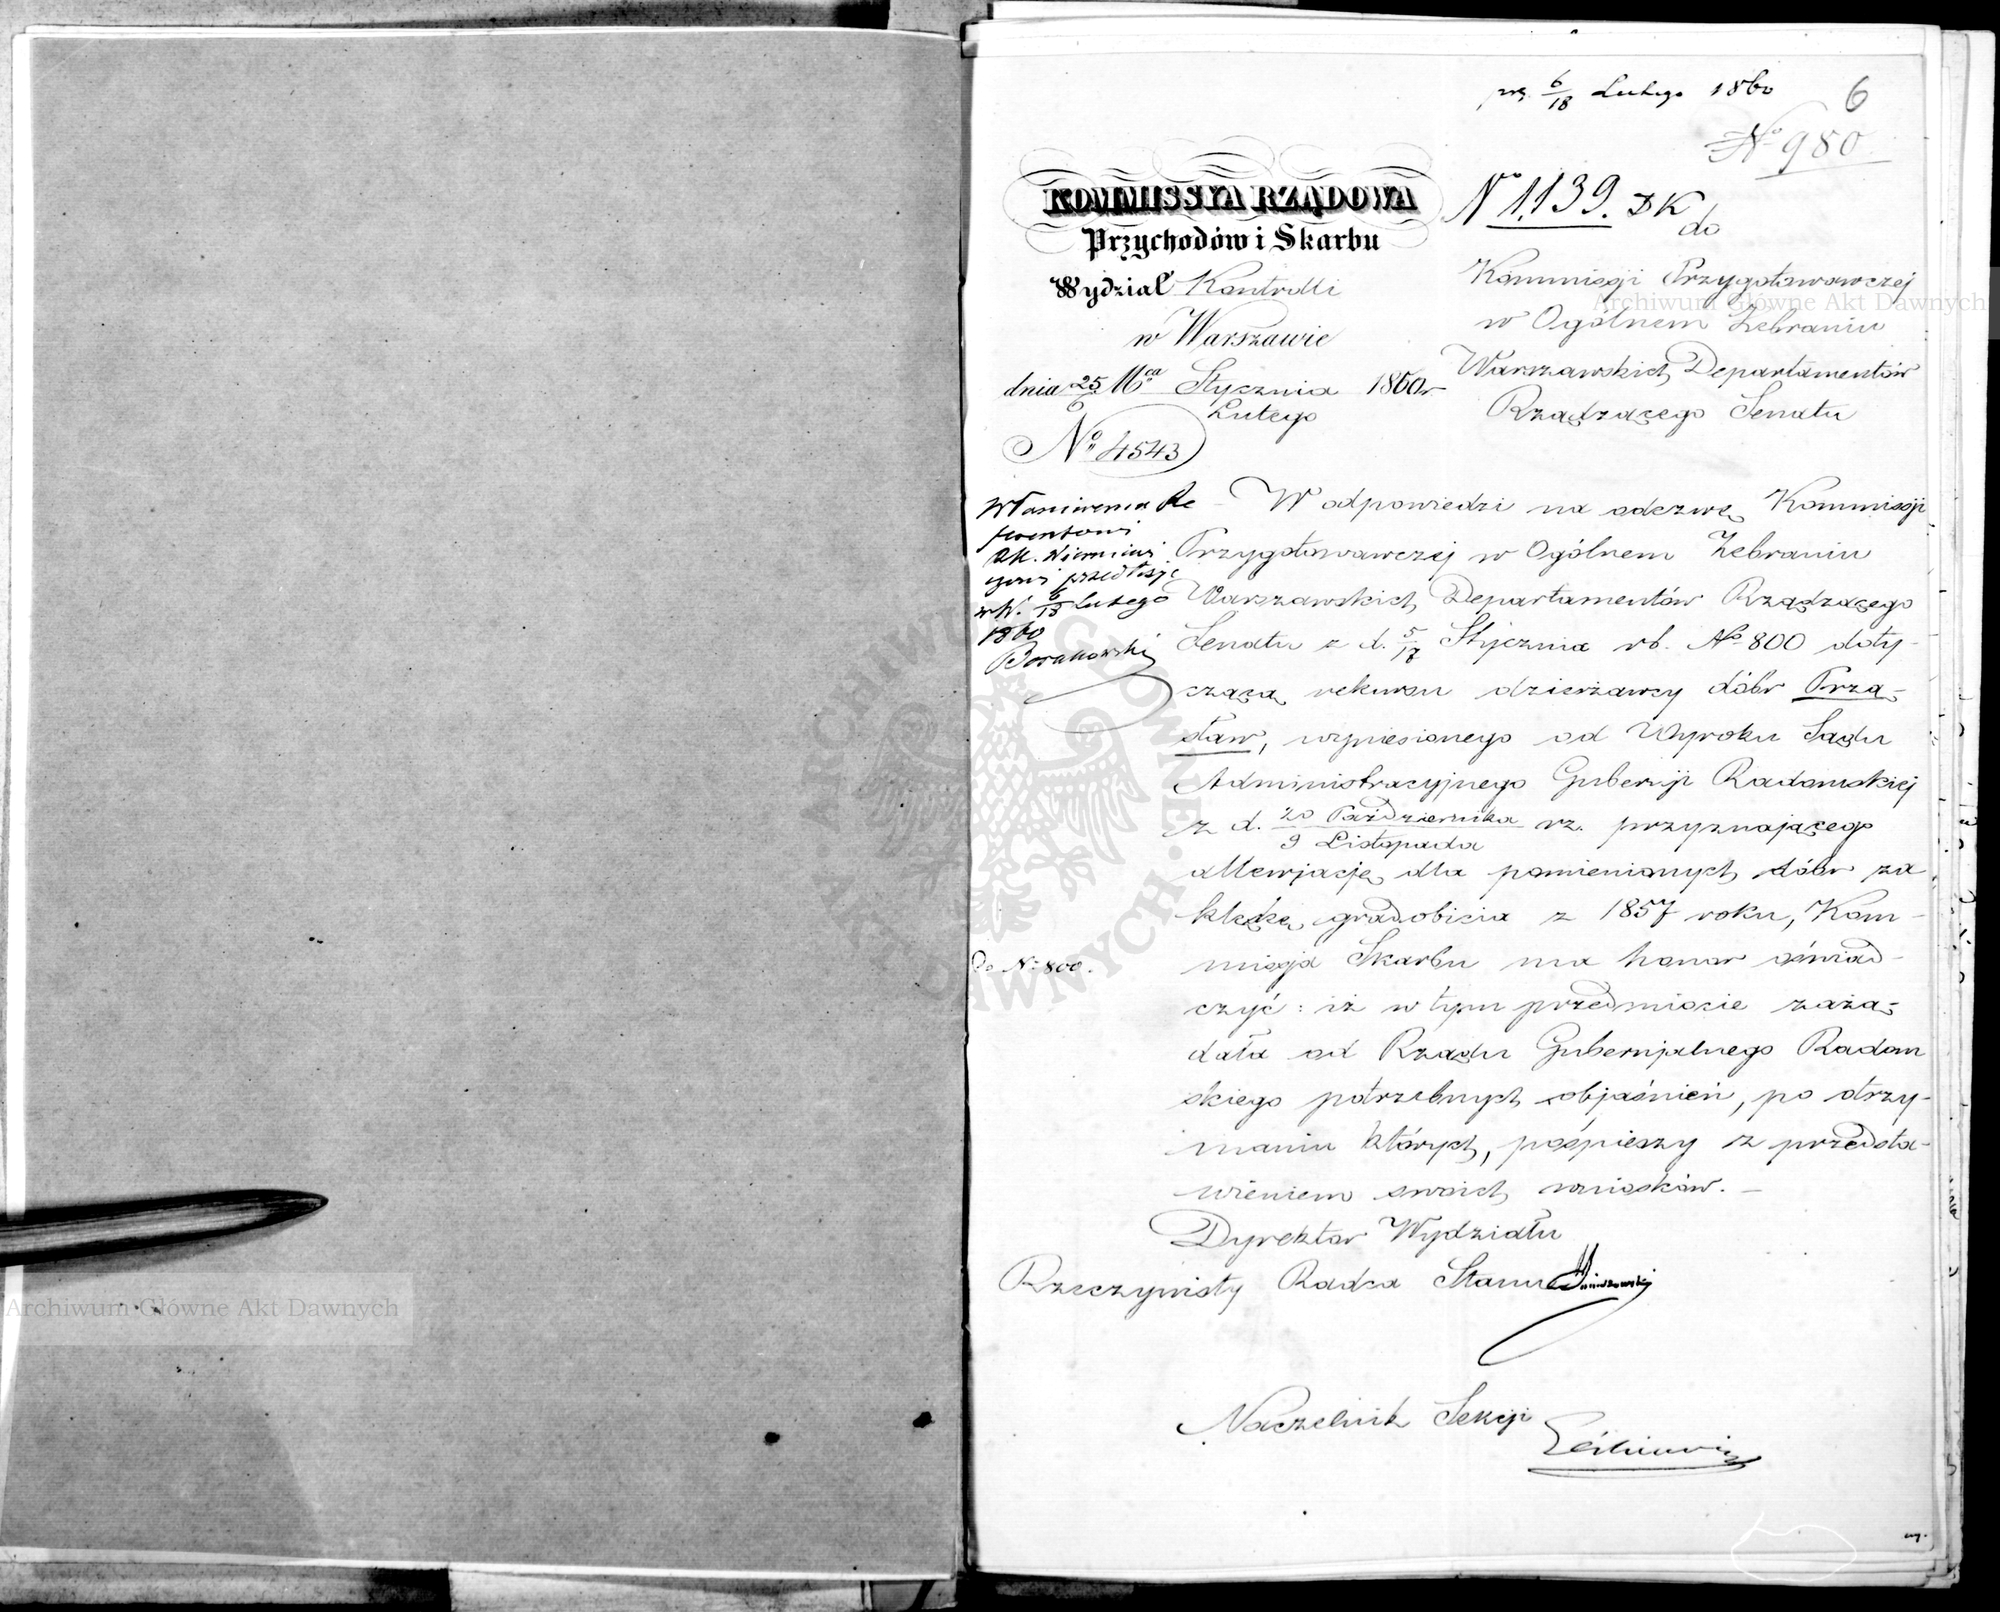 prz. 6/18 Lutego 1860
6
No 980
KOMMISSYA RZĄDOWA
Przychodów i Skarbu
Wydział Kontrolli
w Warszawie
dnia 25/6 Mca Stycznia 1860 r
Lutego
No 4543
No 1,139. DK
do
Kommisji Przygotowawczej
w Ogólnem Zebraniu
Warszawskich Departamentów
Rządzącego Senatu
Re
ferentowi
6/18 Lutego
1860
Do No 800.
W odpowiedzi na odezwę Kommisji
Przygotowawczej w Ogólnem Zebraniu
Warszawskich Departamentów Rządzącego
Senatu z d. 5/17 Stycznia rb. No 800 doty-
czącą rekursu dzierżawcy dóbr Przą-
sław, wyniesionego od Wyroku Sądu
Administracyjnego Gubernji Radomskiej
z d. 20 Października / 9 Listopada rz. przyznającego
allewjację dla pomienionych dóbr za
klęskę gradobicia z 1857 roku, Kom-
misja Skarbu ma honor oświad-
czyć: iż w tym przedmiocie zażą-
dała od Rządu Gubernjalnego Radom
skiego potrzebnych objaśnień, po otrzy-
maniu których, pośpieszy z przedsta-
wieniem swoich wniosków. —
Dyrektor Wydziału
Rzeczywisty Radca Stanu
Naczelnik Sekcji
Archiwum Główne Akt Dawnych
Archiwum Główne Akt Dawnych
ARCHIWUM GŁÓWNE AKT DAWNYCH